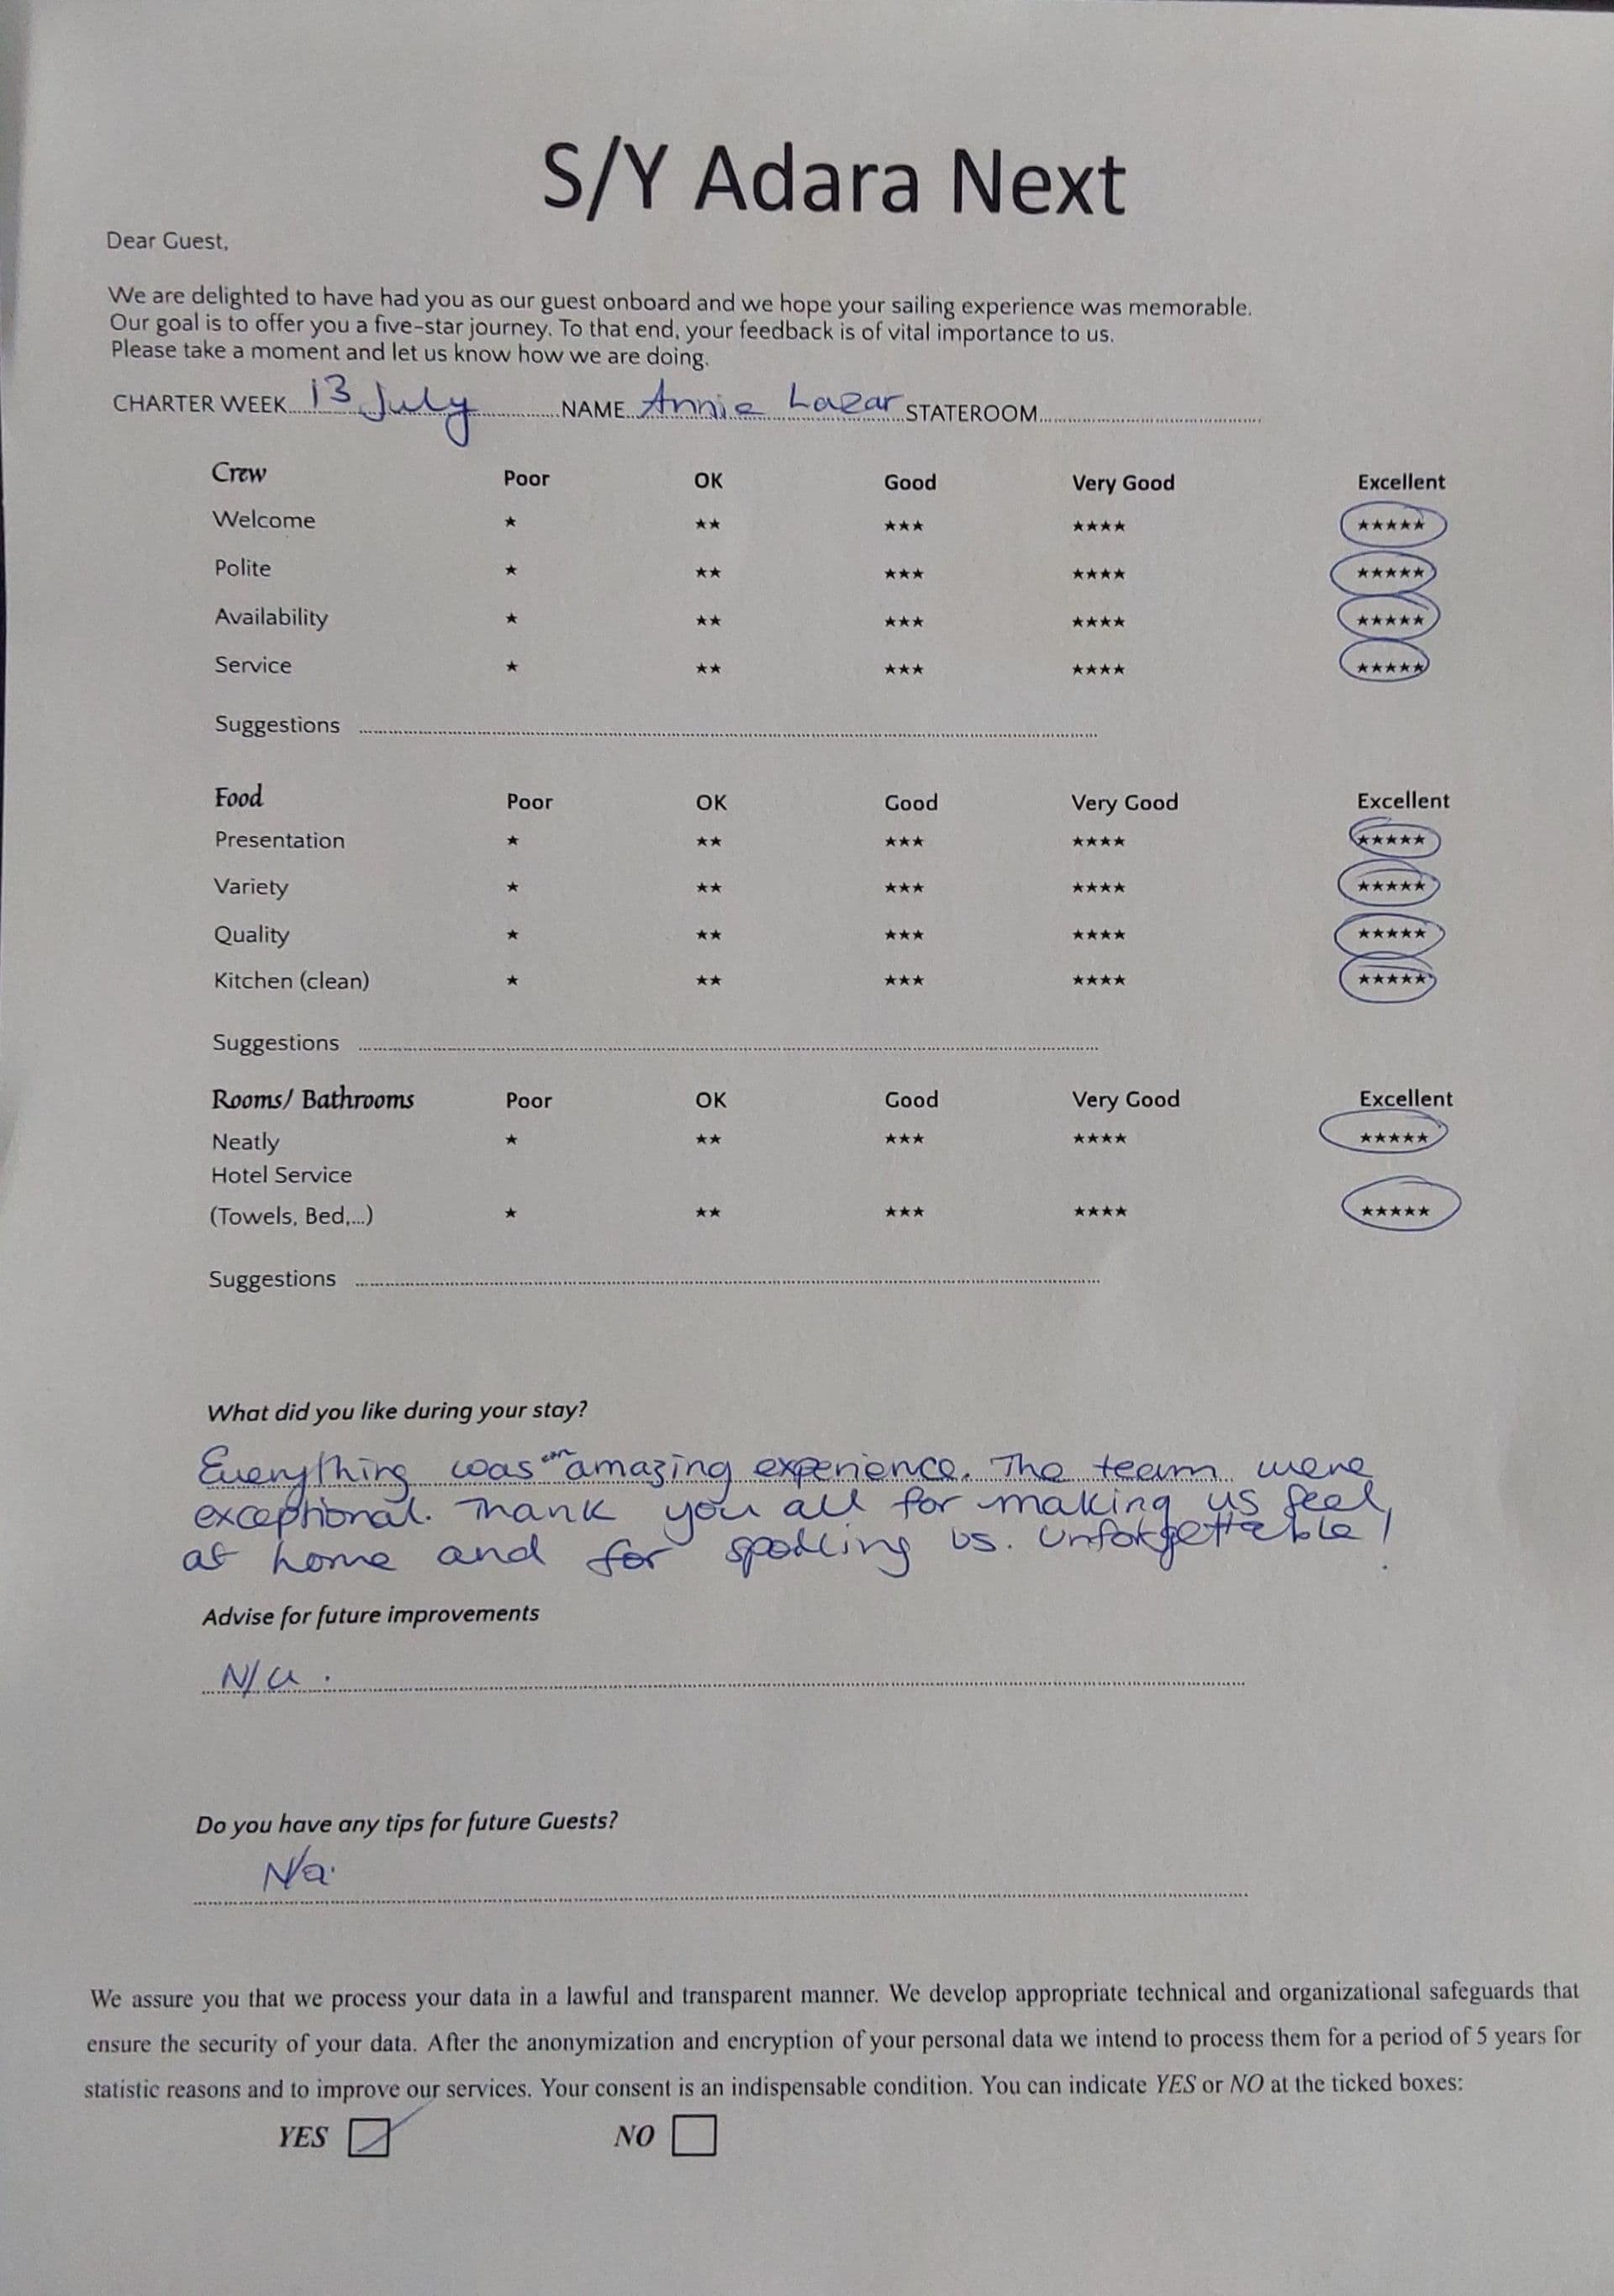 S/Y Adara Next
Dear Guest,
We are delighted to have had you as our guest onboard and we hope your sailing experience was memorable.
Our goal is to offer you a five-star journey. To that end, your feedback is of vital importance to us.
Please take a moment and let us know how we are doing.
CHARTER WEEK 13 July NAME Annie Lazar STATEROOM
Crew Poor OK Good Very Good Excellent
Welcome ★ ★★ ★★★ ★★★★ ★★★★★
Polite ★ ★★ ★★★ ★★★★ ★★★★★
Availability ★ ★★ ★★★ ★★★★ ★★★★★
Service ★ ★★ ★★★ ★★★★ ★★★★★
Suggestions
Food Poor OK Good Very Good Excellent
Presentation ★ ★★ ★★★ ★★★★ ★★★★★
Variety ★ ★★ ★★★ ★★★★ ★★★★★
Quality ★ ★★ ★★★ ★★★★ ★★★★★
Kitchen (clean) ★ ★★ ★★★ ★★★★ ★★★★★
Suggestions
Rooms/ Bathrooms Poor OK Good Very Good Excellent
Neatly ★ ★★ ★★★ ★★★★ ★★★★★
Hotel Service
(Towels, Bed,...) ★ ★★ ★★★ ★★★★ ★★★★★
Suggestions
What did you like during your stay?
Everything was an amazing experience. The team were
exceptional. Thank you all for making us feel
at home and for spoiling us. Unforgettable!
Advise for future improvements
N/a.
Do you have any tips for future Guests?
N/a.
We assure you that we process your data in a lawful and transparent manner. We develop appropriate technical and organizational safeguards that
ensure the security of your data. After the anonymization and encryption of your personal data we intend to process them for a period of 5 years for
statistic reasons and to improve our services. Your consent is an indispensable condition. You can indicate YES or NO at the ticked boxes:
YES NO